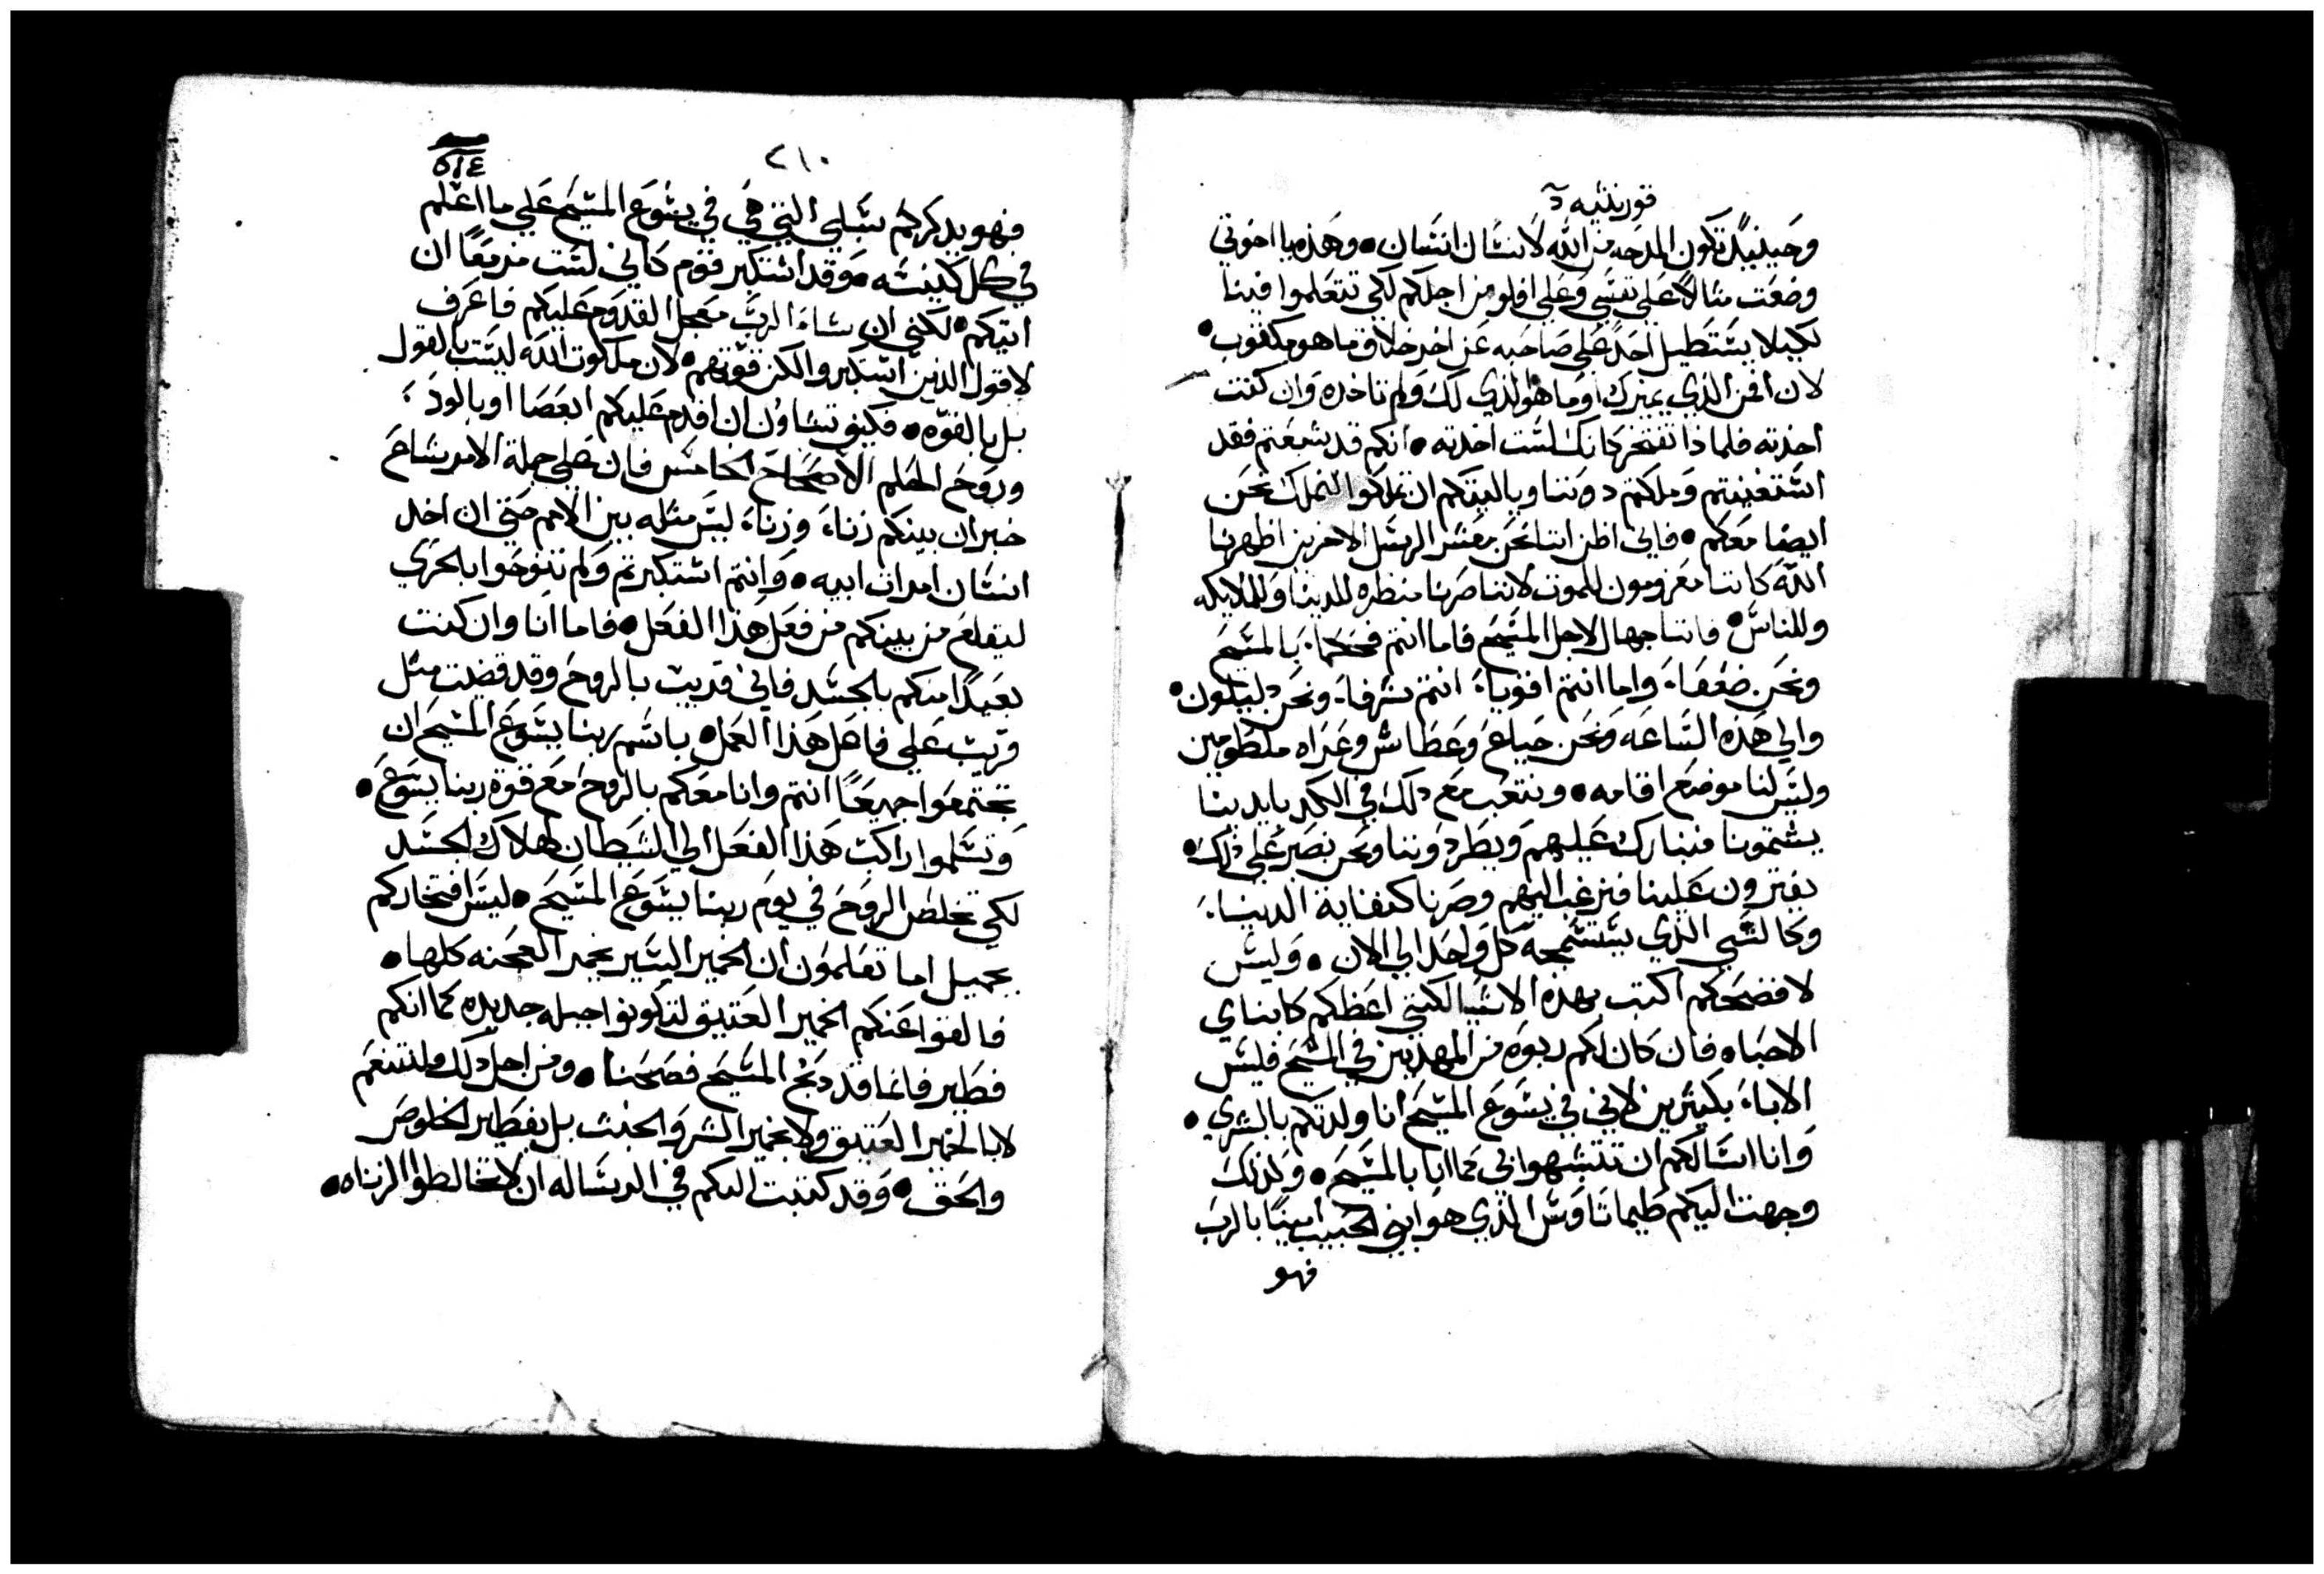 قورنتيه
وحينيدٍ تكون المدحه من الله لانسان انسان • وهذه يا اخوتي
وضعت مثالاً على نفسي وعلى افلو من اجلكم لكي تتعلموا فينا
لكيلا يستطيل احدٌ على صاحبه عن احد خلاف ما هو مكتوب •
لان الذي يميزك اوما هو الذي لك ولم تاخده وان كنت
اخدته فلماذا تفتخر كانك لست اخدته • انكم قد شبعتم فقد
استغنيتم وملكتم دوننا وياليتكم ان تملكوا لنملك نحن
ايضا معكم • فاني اظن اننا نحن معشر الرسل الاخرين اظهرنا
الله كاننا معزومون للموت لاننا صرنا منظره للدينا وللملايكه
وللناس • فاننا جهال لاجل المسيح فاما انتم فحكماء بالمسيح
ونحن ضعفاء واما انتم اقوياء انتم شرفاء ونحن دليلون •
والي هذه الساعه ونحن جياع وعطاش وعراه ملطومين
وليس لنا موضع اقامه • ونتعب مع دلك في الكد بايدينا
يشتمونا فنبارك عليهم ويطردوننا ونحن نصبر على دلك •
يفترون علينا فنرغب اليهم وصرنا كنفاية الدنيا
وكالشي الذي يستسمجه كل واحد الي الان • وليس
لافضحكم اكتب بهذه الاشيا لكنني اعظكم كابناي
الاحباه فان كان لكم ربوه من المهذبين في المسيح فليس
الاباء بكيثرين لاني في يسوع المسيح انا ولدتكم بالبشري •
وانا اسالكم ان تتشبهوا بي كما انا بالمسيح • ولذلك
وجهت اليكم طيماتاوس الذي هو ابني الحبيب امينًا بالرب
فهو
٢١٠
٥١٤
فهو يدكركم سبلي التي هي في يسوع المسيح علي ما اعلم
في كل كنيسه • وقد استكبر قوم كاني لست مزمعًا ان
اتيكم • لكني ان شاء الرب معجل القدوم عليكم فاعرف
لا قول الذين استكبروا لكن قوتهم • لان ملكوت الله ليست بالقول
بل بالقوه • فكيف تشاون ان اقدم عليكم ابعصا او بالود
وروح الحلم الاصحاح الخامس فان علي جملة الامر شاع
خبر ان بينكم زناء وزناء ليس مثله بين الامم حتي ان اخد
انسان امرات ابيه • وانتم استكبرتم ولم تنوحوا بالحري
ليقلع من بينكم من فعل هذا الفعل • فاما انا وان كنت
بعيدًا منكم بالجسد فاني قريب بالروح وقد قضيت مثل
قريب علي فاعل هذا العمل • باسم ربنا يسوع المسيح ان
تجتمعوا جميعًا انتم وانا معكم بالروح مع قوة ربنا يسوع •
وتسلموا راكب هذا الفعل الي الشيطان لهلاك الجسد
لكي تخلص الروح في يوم ربنا يسوع المسيح • ليس افتخاركم
بجميل اما تعلمون ان الخمير اليسير يخمر العجنه كلها •
فالقوا عنكم الخمير العتيق لتكونوا جبله جديده كما انكم
فطير فانما قد دبح المسيح فصحنا • ومن اجل دلك ولنتنعم
لا بالخمير العتيق ولا بخمير الشر والخبث بل بفطير الخلوص
والحق • وقد كتبت اليكم في الرساله ان لا تخالطوا الزناه •